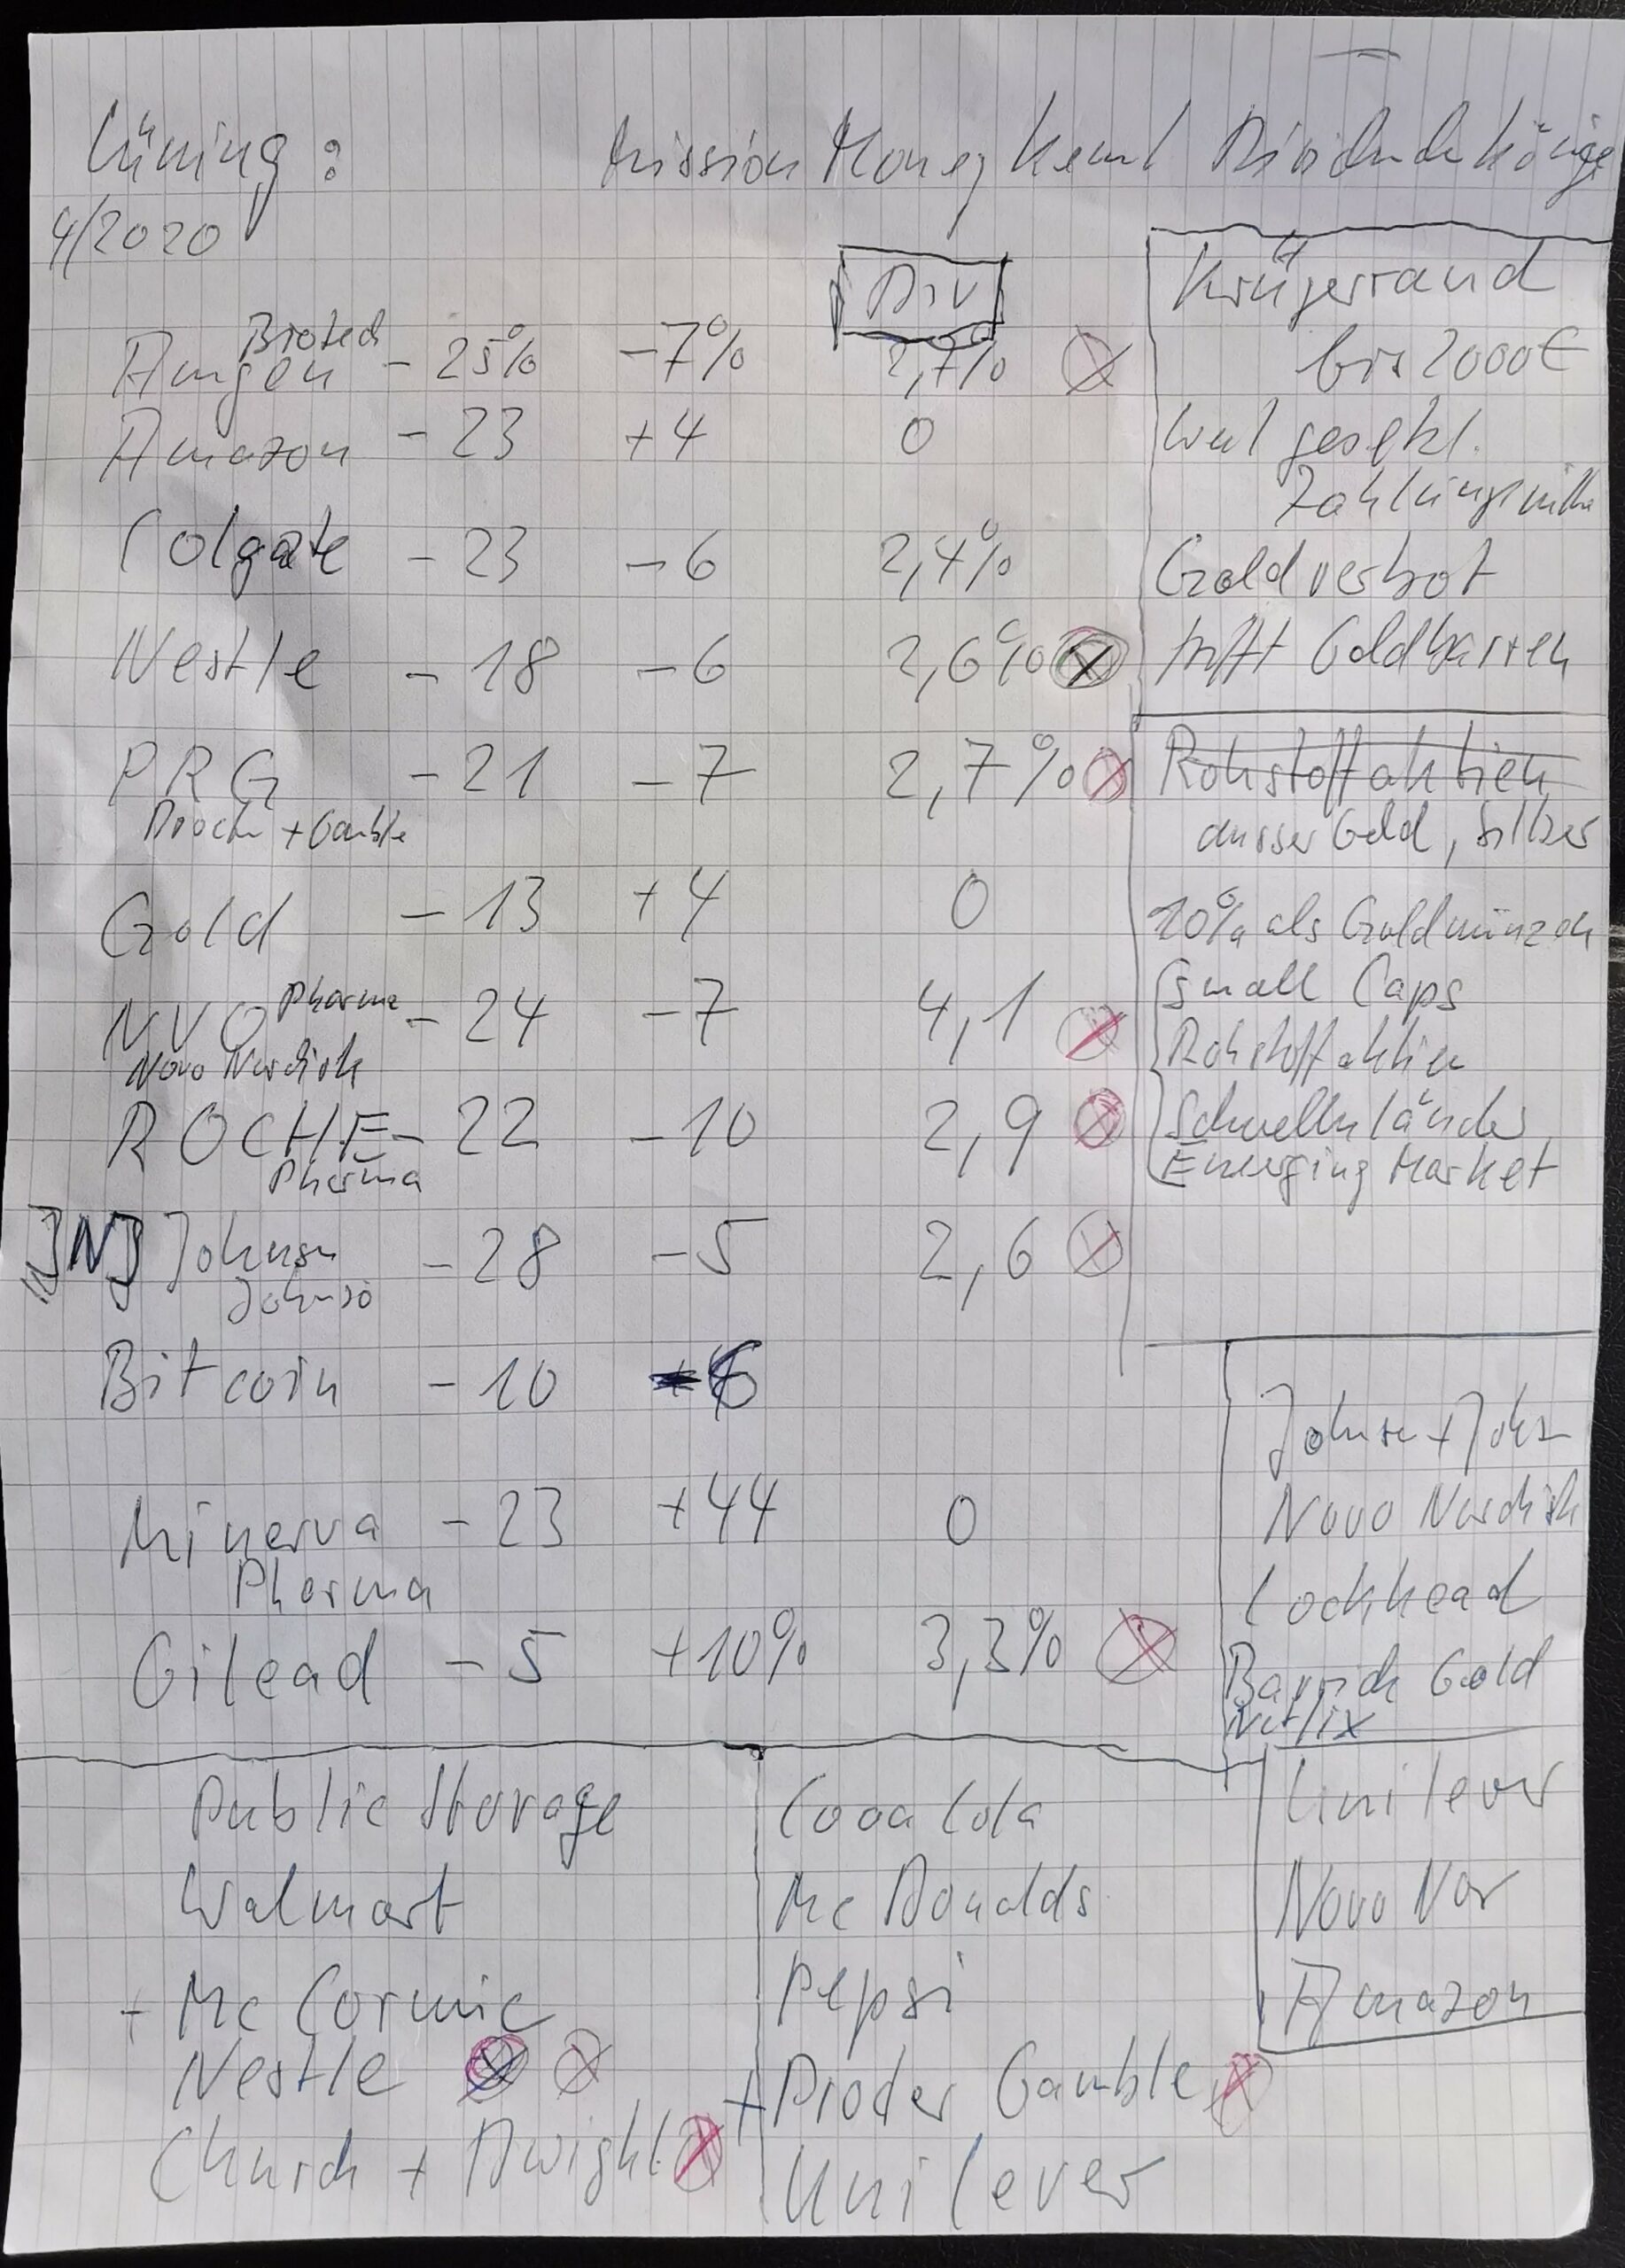 Lüning: Mission Money kennt Dividendenkönige
4/2020
Div
Biotech
Amgen - 25% -7% 2,7%
Amazon - 23 +4 0
Colgate - 23 -6 2,4%
Nestle - 18 -6 2,6%
PRG - 21 -7 2,7%
Procter + Gamble
Gold - 13 +4 0
NVO Pharma - 24 -7 4,1
Novo Nordisk
ROCHE - 22 -10 2,9
Pharma
JNJ Johnson - 28 -5 2,6
Johnso
Bitcoin - 10 6
Minerva - 23 +44 0
Pharma
Gilead - 5 +10% 3,3%
Krügerrand
bis 2000€
weil gesetzl.
Zahlungsmittel
Goldverbot
trifft Goldbarren
Rohstoffaktien
ausser Gold, Silber
10% als Goldmünzen
Small Caps
Rohstoffaktien
Schwellnländer,
Emerging Market
Johnson + John
Novo Nordisk
Lockhead
Barrick Gold
Netflix
Unilever
Novo Nor
Amazon
Public Storage
Walmart
+ Mc Cormic
Nestle
Church + Dwight
Coca Cola
Mc Donalds
Pepsi
+ Procter Gamble
Unilever